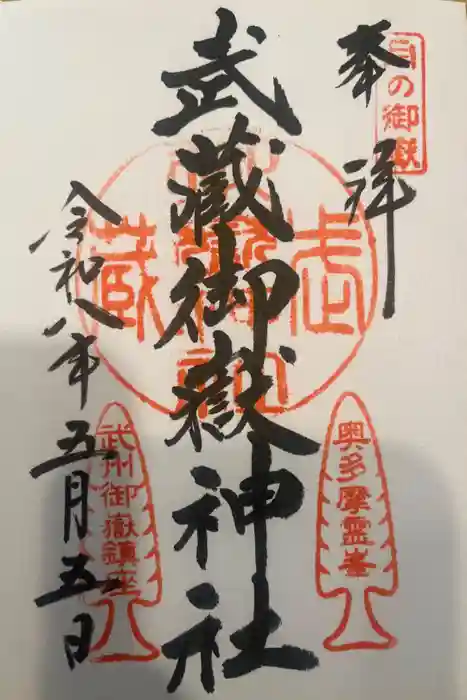 奉拝
日の御嶽
武蔵御嶽神社
武蔵
奥多摩霊峯
武州御嶽鎮座
令和八年五月五日